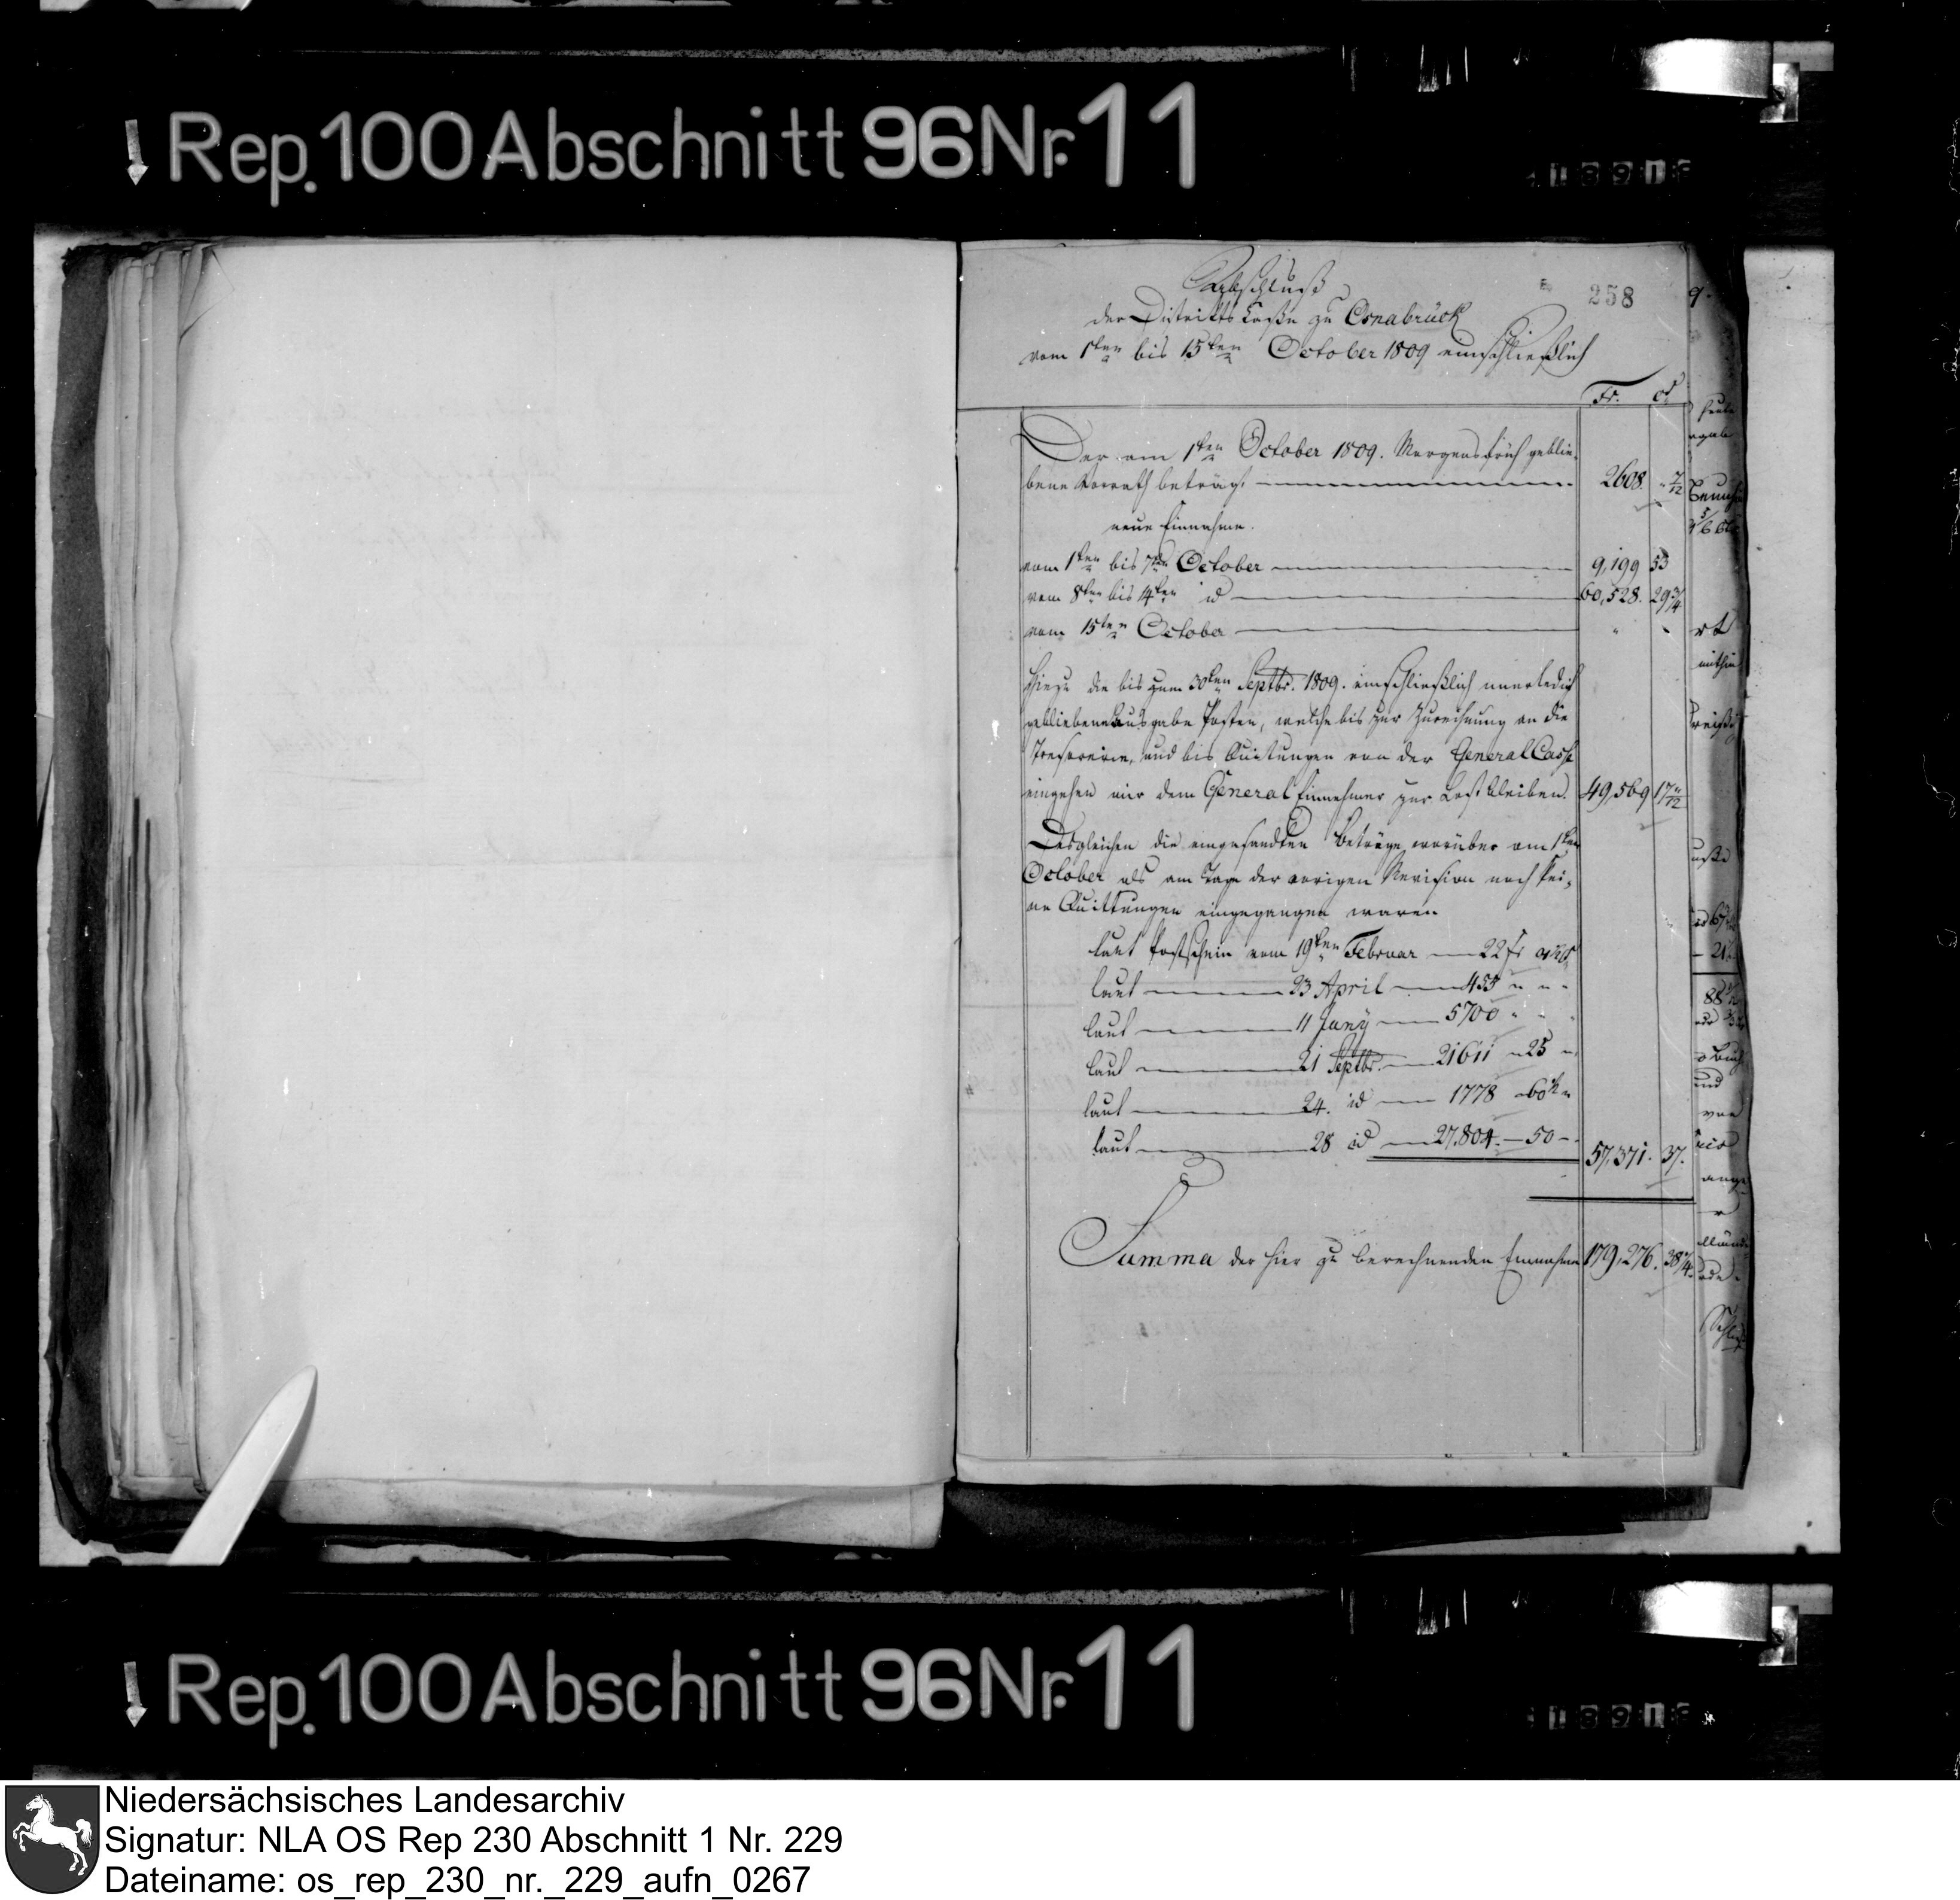 Rep. 100 Abschnitt 96 Nr. 11
Abschluß
258
der Distrikts Casse zu Osnabrück
vom 1ten bis 15ten October 1809 einschließlich
Fr. Ct
Der am 1ten October 1809. Morgens früh geblie-
bene Vorrath beträgt 2608. " 7/12
neue Einnahme.
vom 1ten bis 7ten October 9,199 53
vom 8ten bis 14ten id 60,528. 29 3/4
vom 15ten October " "
Hiezu die bis zum 30ten Septbr. 1809. einschließlich unerledigt
gebliebene Ausgabe Posten, welche bis zur Zurechnung an die
und bis Quitungen von der General Casse
eingehen mir dem General Einnehmer zur Last bleiben. 49,569 17
Desgleichen die eingesandten Beträge worüber am 1ten
October als am Tage der vorigen Revision noch kei-
ne Quittungen eingegangen waren
laut Postschein vom 19ten Februar 22 Fr
laut 23 April 455 " " "
laut 11 Juny 5700 " "
laut 21 Septbr. 21611 " 25 "
laut 24. id 1778 " 60 "
laut 28 id 27,804. 50
57,371. 37.
Summa der hier zu berechnenden Einnahme 179,276. 38
Rep. 100 Abschnitt 96 Nr. 11
Niedersächsisches Landesarchiv
Signatur: NLA OS Rep 230 Abschnitt 1 Nr. 229
Dateiname: os_rep_230_nr._229_aufn_0267